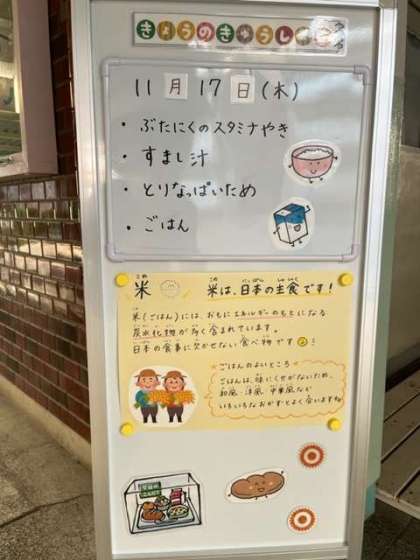 きょうのきゅうしょく
11月17日(木)
・ぶたにくのスタミナやき
・すまし汁
・とりなっぱいため
・ごはん
米 米は、日本の主食です!
米(ごはん)には、おもにエネルギーのもとになる
炭水化物が多く含まれています。
日本の食事に欠かせない食べ物です
ごはんのよいところ
ごはんは、味にくせがないため、
和風・洋風・中華風など
いろいろなおかずとよく合いますね